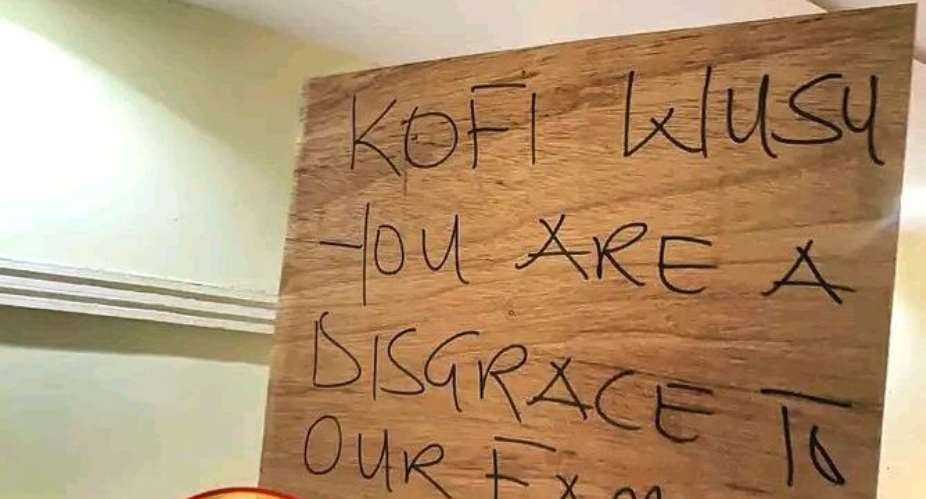 KOFI WUSU
YOU ARE A
DISGRACE TO
OUR